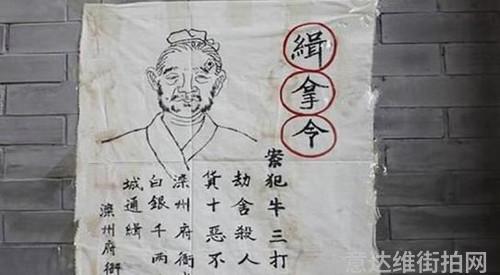 緝拿令
案犯牛三打
劫舍殺人
貨十惡不
滦州府衙
白銀千两
城通緝
滦州府衙
意达维街拍网